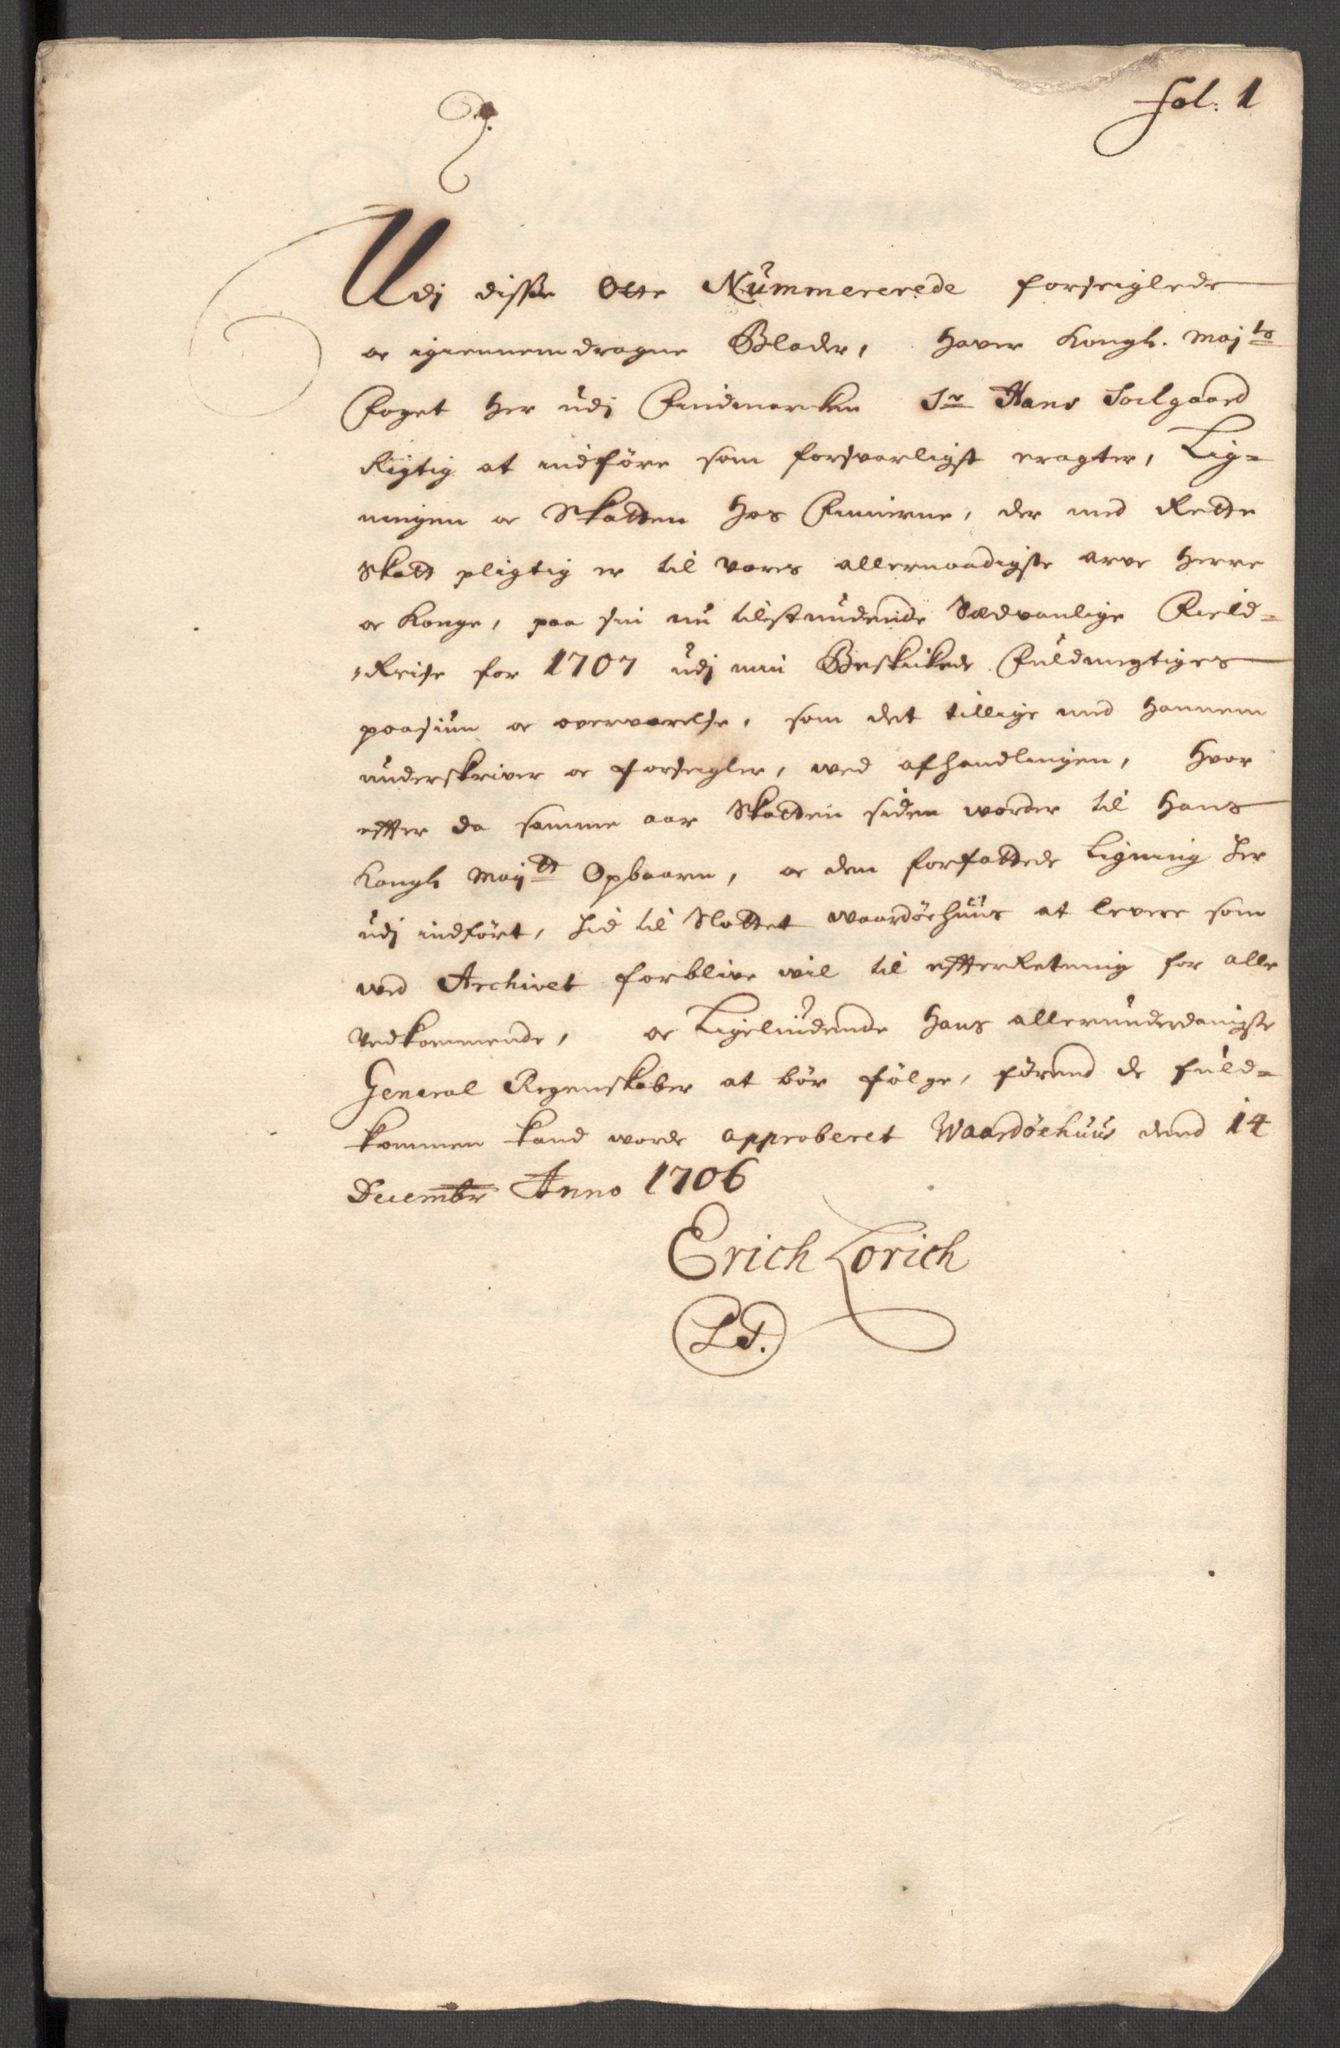 Fol: 1
Udj disse Otte Nummererede forseiglede
oc igiennemdragne Blader, haver Kongl. Maj<sup>ts</sup>
Foget her udj Findmarken S<sup>r</sup> Hans Soelgaard
Rigtig at indføre som forsvarligst eragter, Lig=
ningen oc Skatten hos Finnerne, der med Rette
Skatt pligtig er til vores allernaadigste arve Herre
oc Konge, paa sin nu tilstundende Sædvanlige Field=
=Reise for 1707 udj min Beskikede Fuldmegtiges
paasiun oc overværelse, som det tillige med hannem
underskriver oc forseigler, wed afhandlingen, hvor
effter da samme aar Skatten siden worder til Hans
Kongl Maj<sup>tt</sup> Opbaaren, oc den forfattede Ligning her
udj indført, hid til Slottet Waardøehuus at levere som
wed Archivet forblive wil til effterRetning for alle
Vedkommende, oc Ligeliudende hans allerunderdanigste
General Regenskaber at bør følge, førend de fuld=
kommen kand worde approberet Waardøehuus dend 14
Decembr Anno 1706
Erich Lorich
LS.